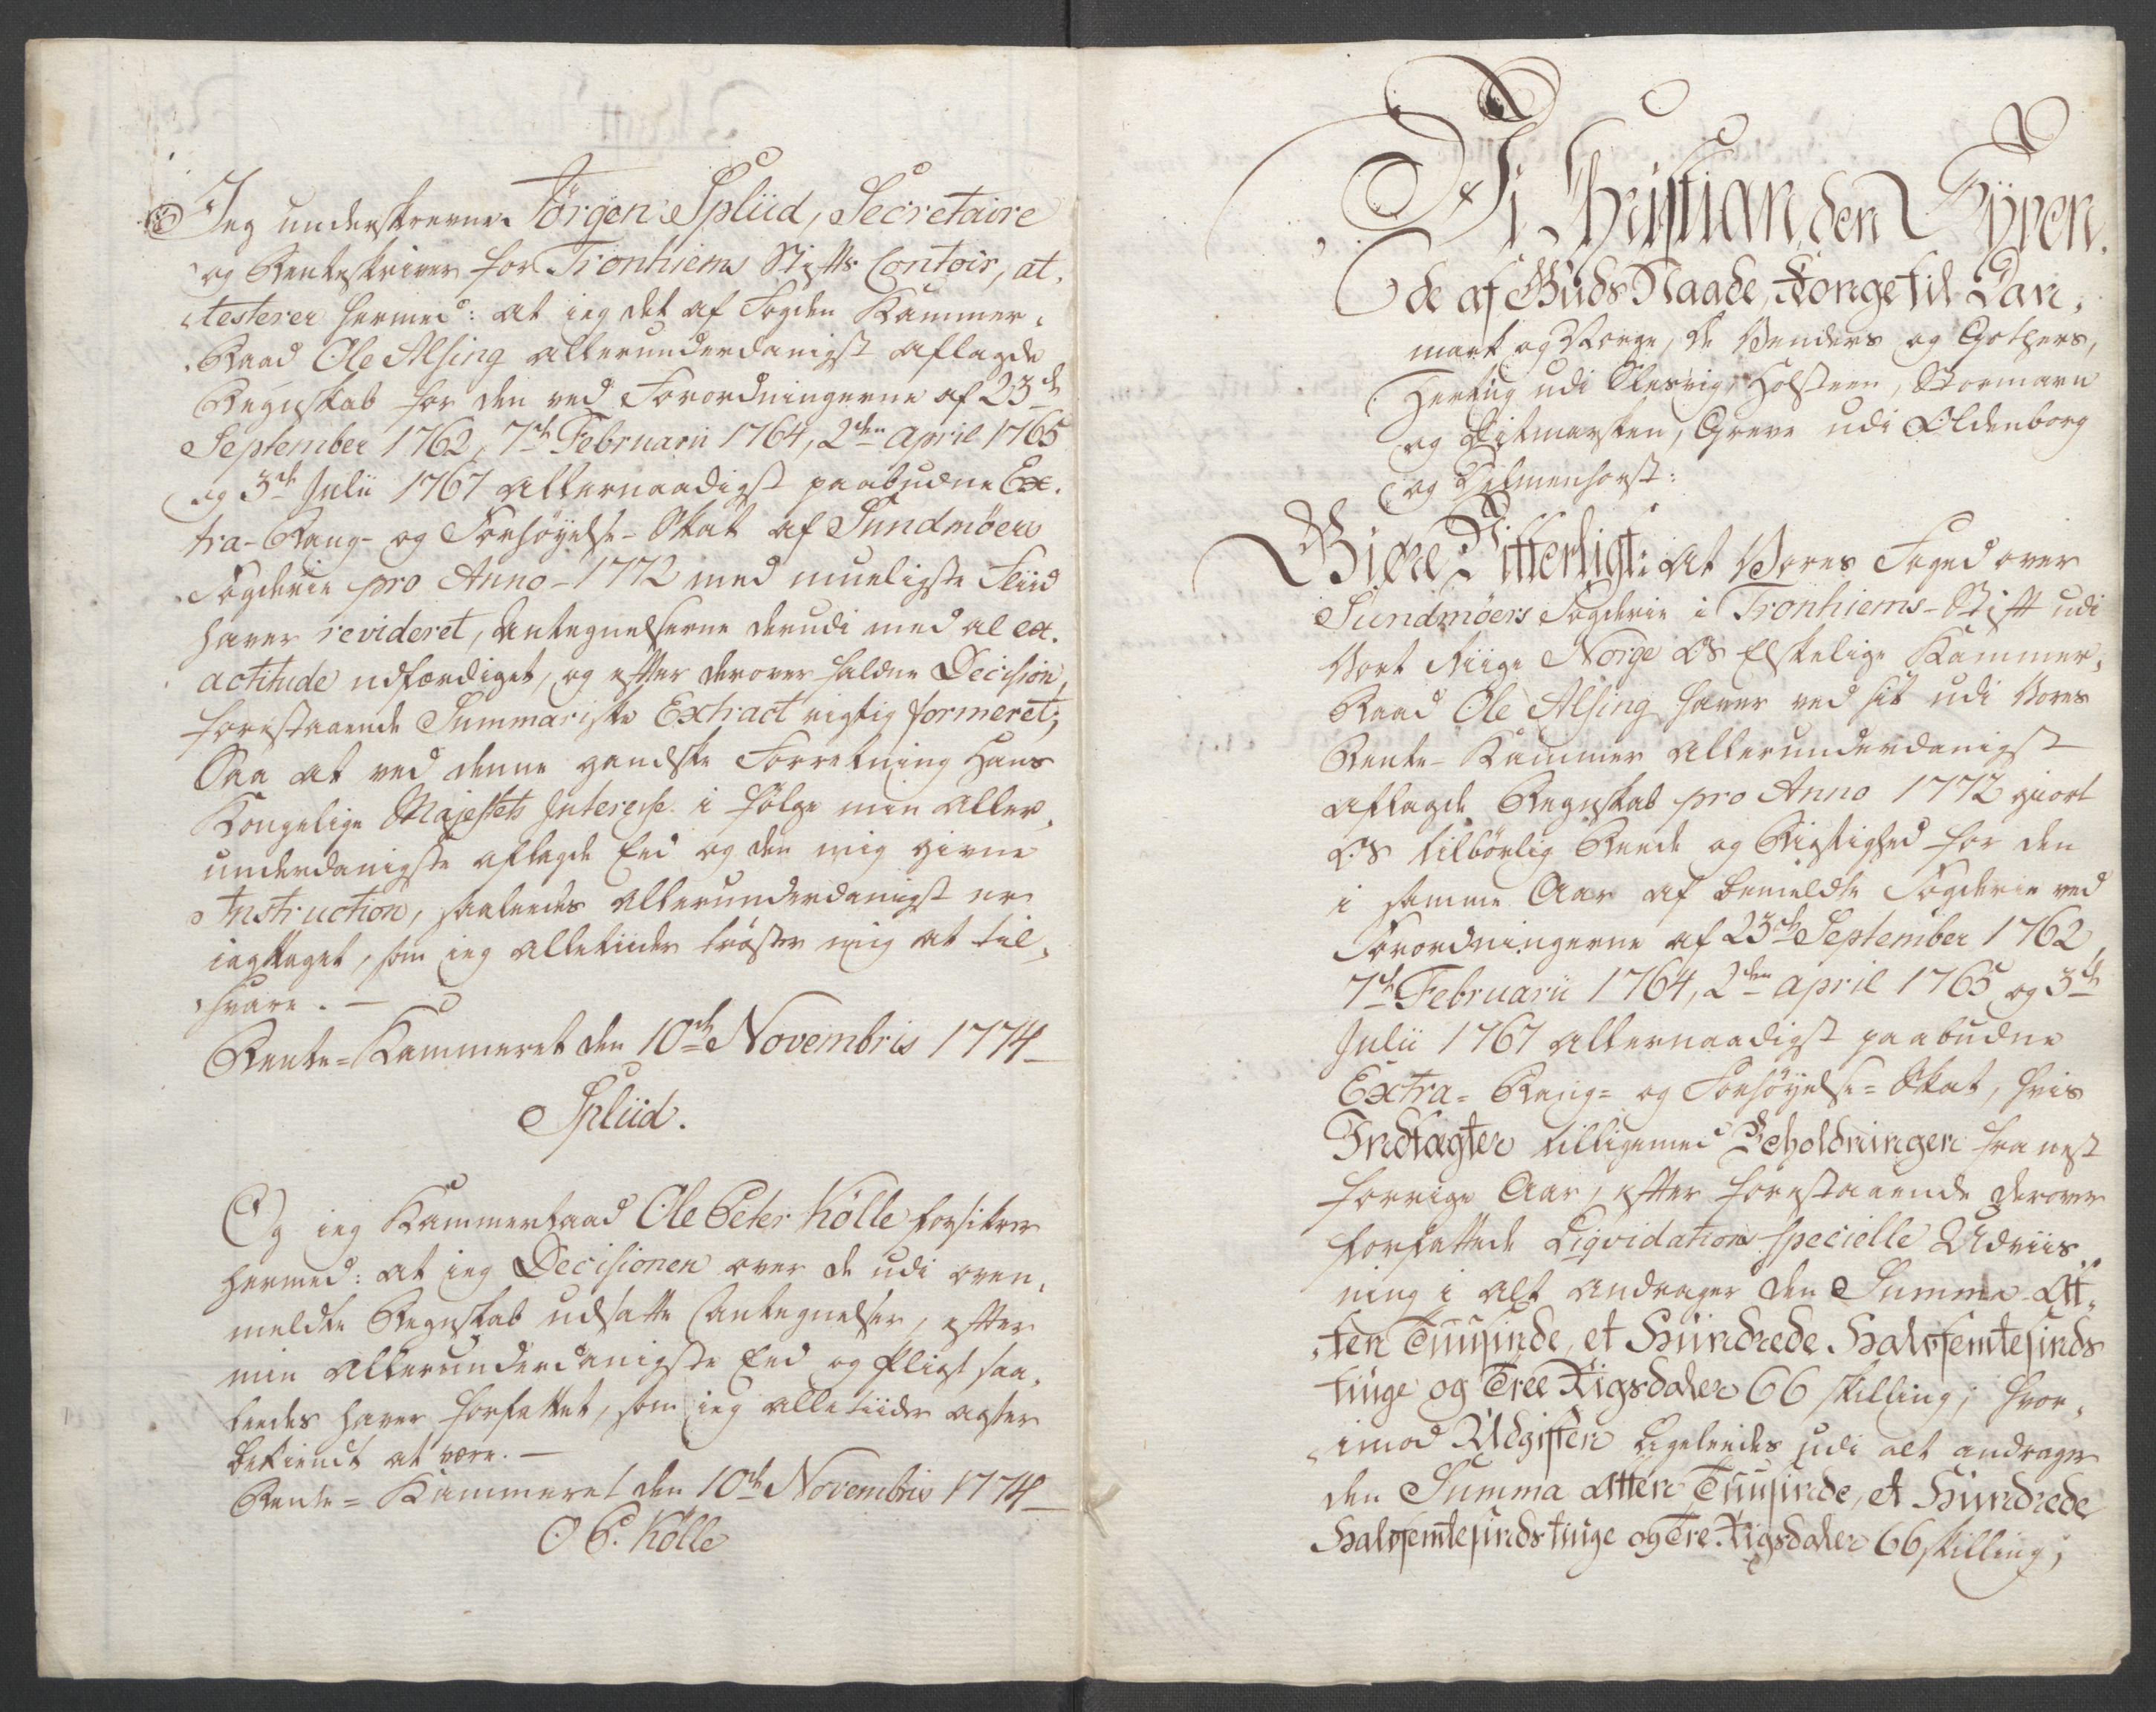 Jeg underskrevne Jörgen Splüd, Secretaire
og Renteskriver for Tronhiems Stifts Contoir, at-
testerer hermed: at jeg det af Fogden Kammer-
Raad Ole Alsing allerunderdanigst aflagde
Regnskab for den ved Forordningerne af 23de
September 1762, 7de Februarii 1764, 2den April 1765
og 3de Julii 1767 allernaadigst paabudne Ex-
tra- Rang- og Forhöyelse-Skat af Sundmöers
Fogderie pro Anno 1772 med mueligste Fliid
haver revideret, Antegnelserne derudi med al ex-
actitude udfærdiget, og efter derover faldne Decision,
forestaaende Summariske Extract rigtig formeret;
Saa at ved denne gandske Forretning Hans
Kongelige Majestets Interesse i fölge min aller-
underdanigste aflagde Eed og den mig givne
Instruction, saaledes allerunderdanigst er
iagttaget, som jeg alletiider tröster mig at til-
svare. —
Rente-Kammeret den 10de Novembris 1774
Splüd.
Og jeg Kammerraad Ole Peter Kölle forsikrer
hermed: at jeg Decisionen over de udi oven-
meldte Regnskab udsatte Antegnelser, efter
min allerunderdanigste Eed og Pligt saa-
ledes haver forfattet, som jeg alle tiider agter
bekiendt at være. —
Rente-Kammeret den 10de Novembris 1774
O P. Kölle
Vi Christian den Syven-
de af Guds Naade, Konge til Dan-
mark og Norge, de Venders og Gothers,
Hertug udi Slesvig, Holsteen, Stormarn
og Ditmarsken, Greve udi Oldenborg
og Delmenhorst:
Giöre Vitterligt: at Vores Foged over
Sundmöers Fogderie i Tronhiems-Stift udi
Vort Riige Norge Os Elskelige Kammer-
Raad Ole Alsing haver ved sit udi Vores
Rente-Kammer allerunderdanigst
aflagde Regnskab pro Anno 1772 giort
Os tilbörlig Reede og Rigtighed for den
i samme Aar af bemeldte Fogderie ved
Forordningerne af 23de September 1762,
7de Februarii 1764, 2den April 1765 og 3de
Julii 1767 allernaadigst paabudne
Extra- Rang- og Forhöyelse-Skat, hvis
Indtægter tilligemed Beholdningen fra nest
forrige Aar, efter forestaaende derover
forfattede Liqvidations specielle Udviis-
ning i alt andrager den Summa Att-
ten Tuusinde, et Hündrede Halvfemtesinds
tiuge og Tree Rigsdaler 66 skilling; hvor-
imod Udgiften ligeleedes udi alt andrager
den Summa Atten Tuusinde, et Hündrede
Halvfemtesindstiuge og Tre Rigsdaler 66 skilling;